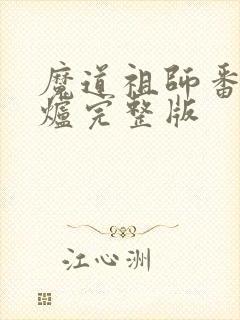 魔道祖師番
爐完整版
江心洲